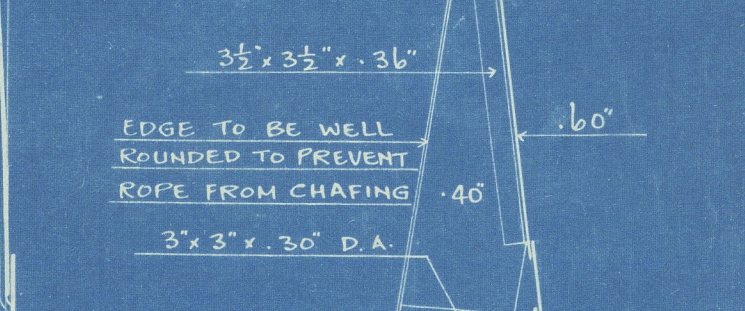 3½" x 3½" x .36"
.60"
EDGE TO BE WELL
ROUNDED TO PREVENT
ROPE FROM CHAFING
.40"
3" x 3" x .30" D.A.